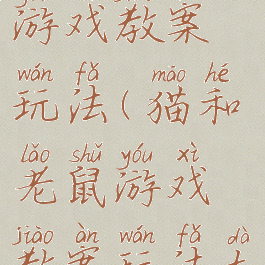 游戏教案
wán fǎ māo hé
玩法(猫和
lǎo shǔ yóu xì
老鼠游戏
jiào àn wán fǎ dà
教案玩法大